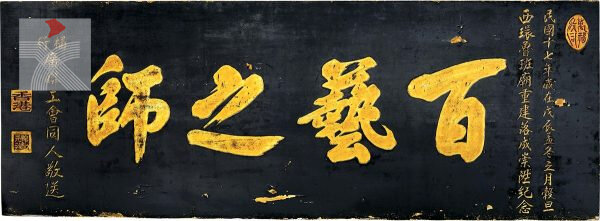 民國十七年歲在戊辰孟冬之月穀旦
西環魯班廟重建落成崇陞紀念
百藝之師
工會同人敬送